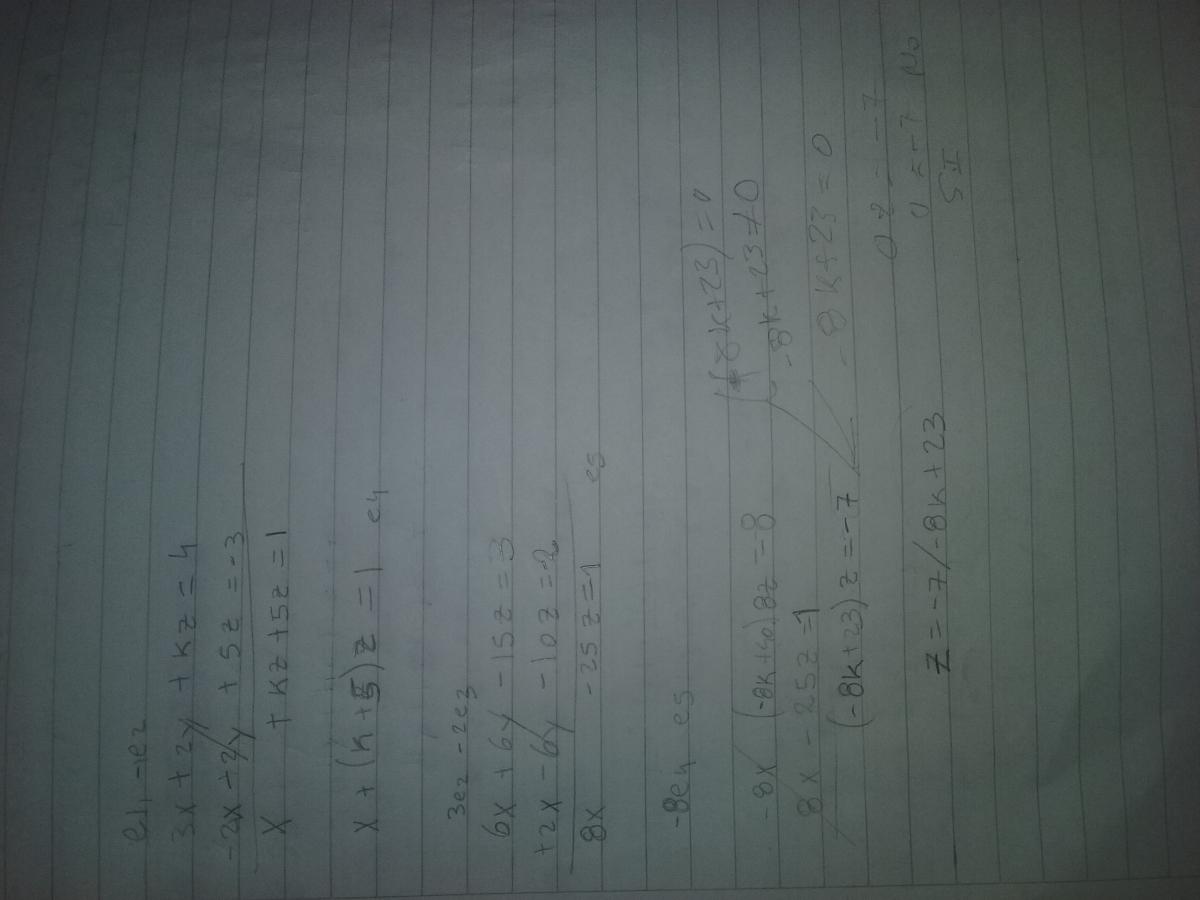 e1 -e2
3x + 2y + kz = 4
-2x + 2y + 5z = -3
x + kz + 5z = 1
x + (k + 5)z = 1 e4
3e2 - 2e3
6x + 6y - 15z = 3
+2x - 6y - 10z = -2
8x - 25z = 1 e5
-8e4 e5
(-8k+23) = 0
-8x (-8k+40) 8z = -8
-8k+23≠0
8x - 25z = 1
-8k+23 = 0
(-8k+23) z = -7
0z = -7
z = -7/-8k+23
0 = -7 No
SI